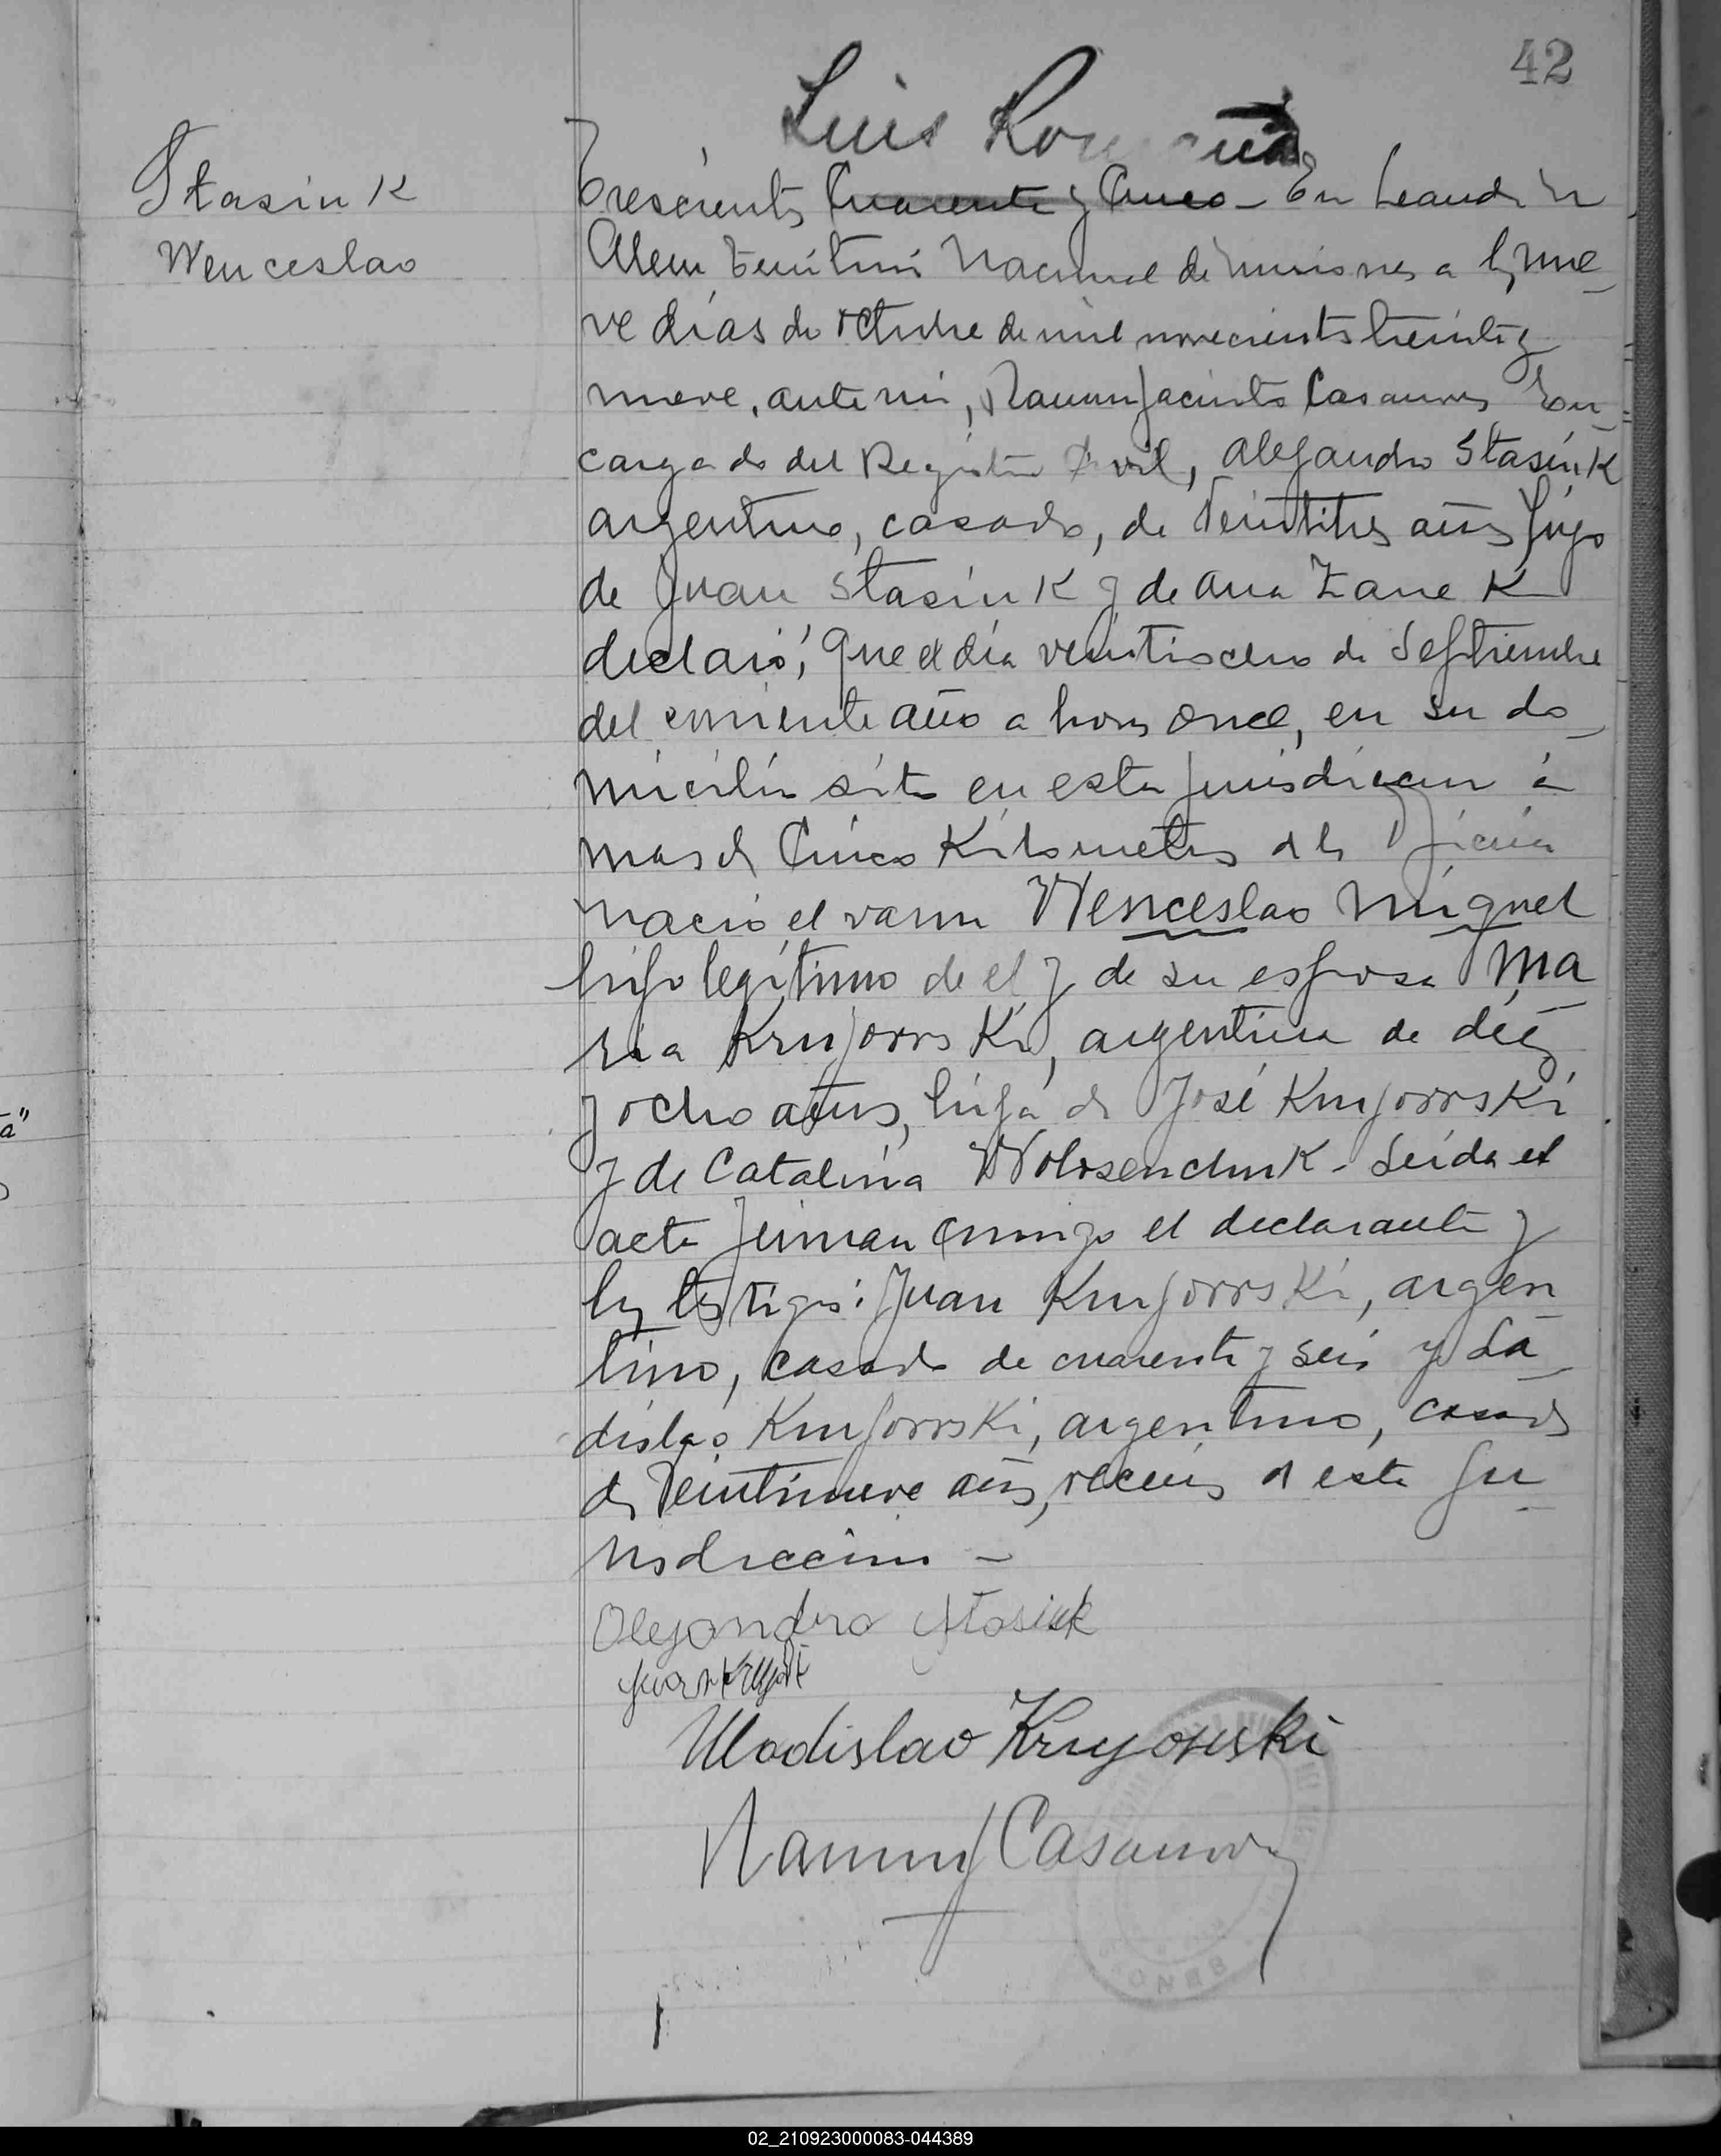 42
Luis
Stasiuk
Wenceslao
Trescientos Cuarenta y Cinco - En Leandro N
Alem Territorio Nacional de Misiones a los nue_
ve días de octubre de mil novecientos treinta y
nueve, ante mi, Ramon Jacinto Casanova En_
cargado del Registro Civil, Alejandro Stasiuk
argentino, casado, de veintitres años hijo
de Juan Stasiuk y de Ana Zane K
declaró: Que el día veintiocho de Septiembre
del corriente año a horas once, en su do_
micilio sito en esta jurisdiccion á
mas de Cinco Kilometros de la Oficina
nació el varon Wenceslao Miguel
hijo legítimo de el y de su esposa Ma
ria Krujowski, argentina de diez
y ocho años, hija de José Krujowski
y de Catalina Wolosenchuk - Leida el
acta firman conmigo el declarante y
los testigos: Juan Krujowski, argen
tino, casado de cuarenta y seis y La_
dislao Krujowski, argentino, casado
de veintinueve años, vecinos de esta ju_
risdiccion -
Alejandro Stasiuk
Juan
Wladislao Kruyowski
Ramon J Casanova
02_210923000083-044389